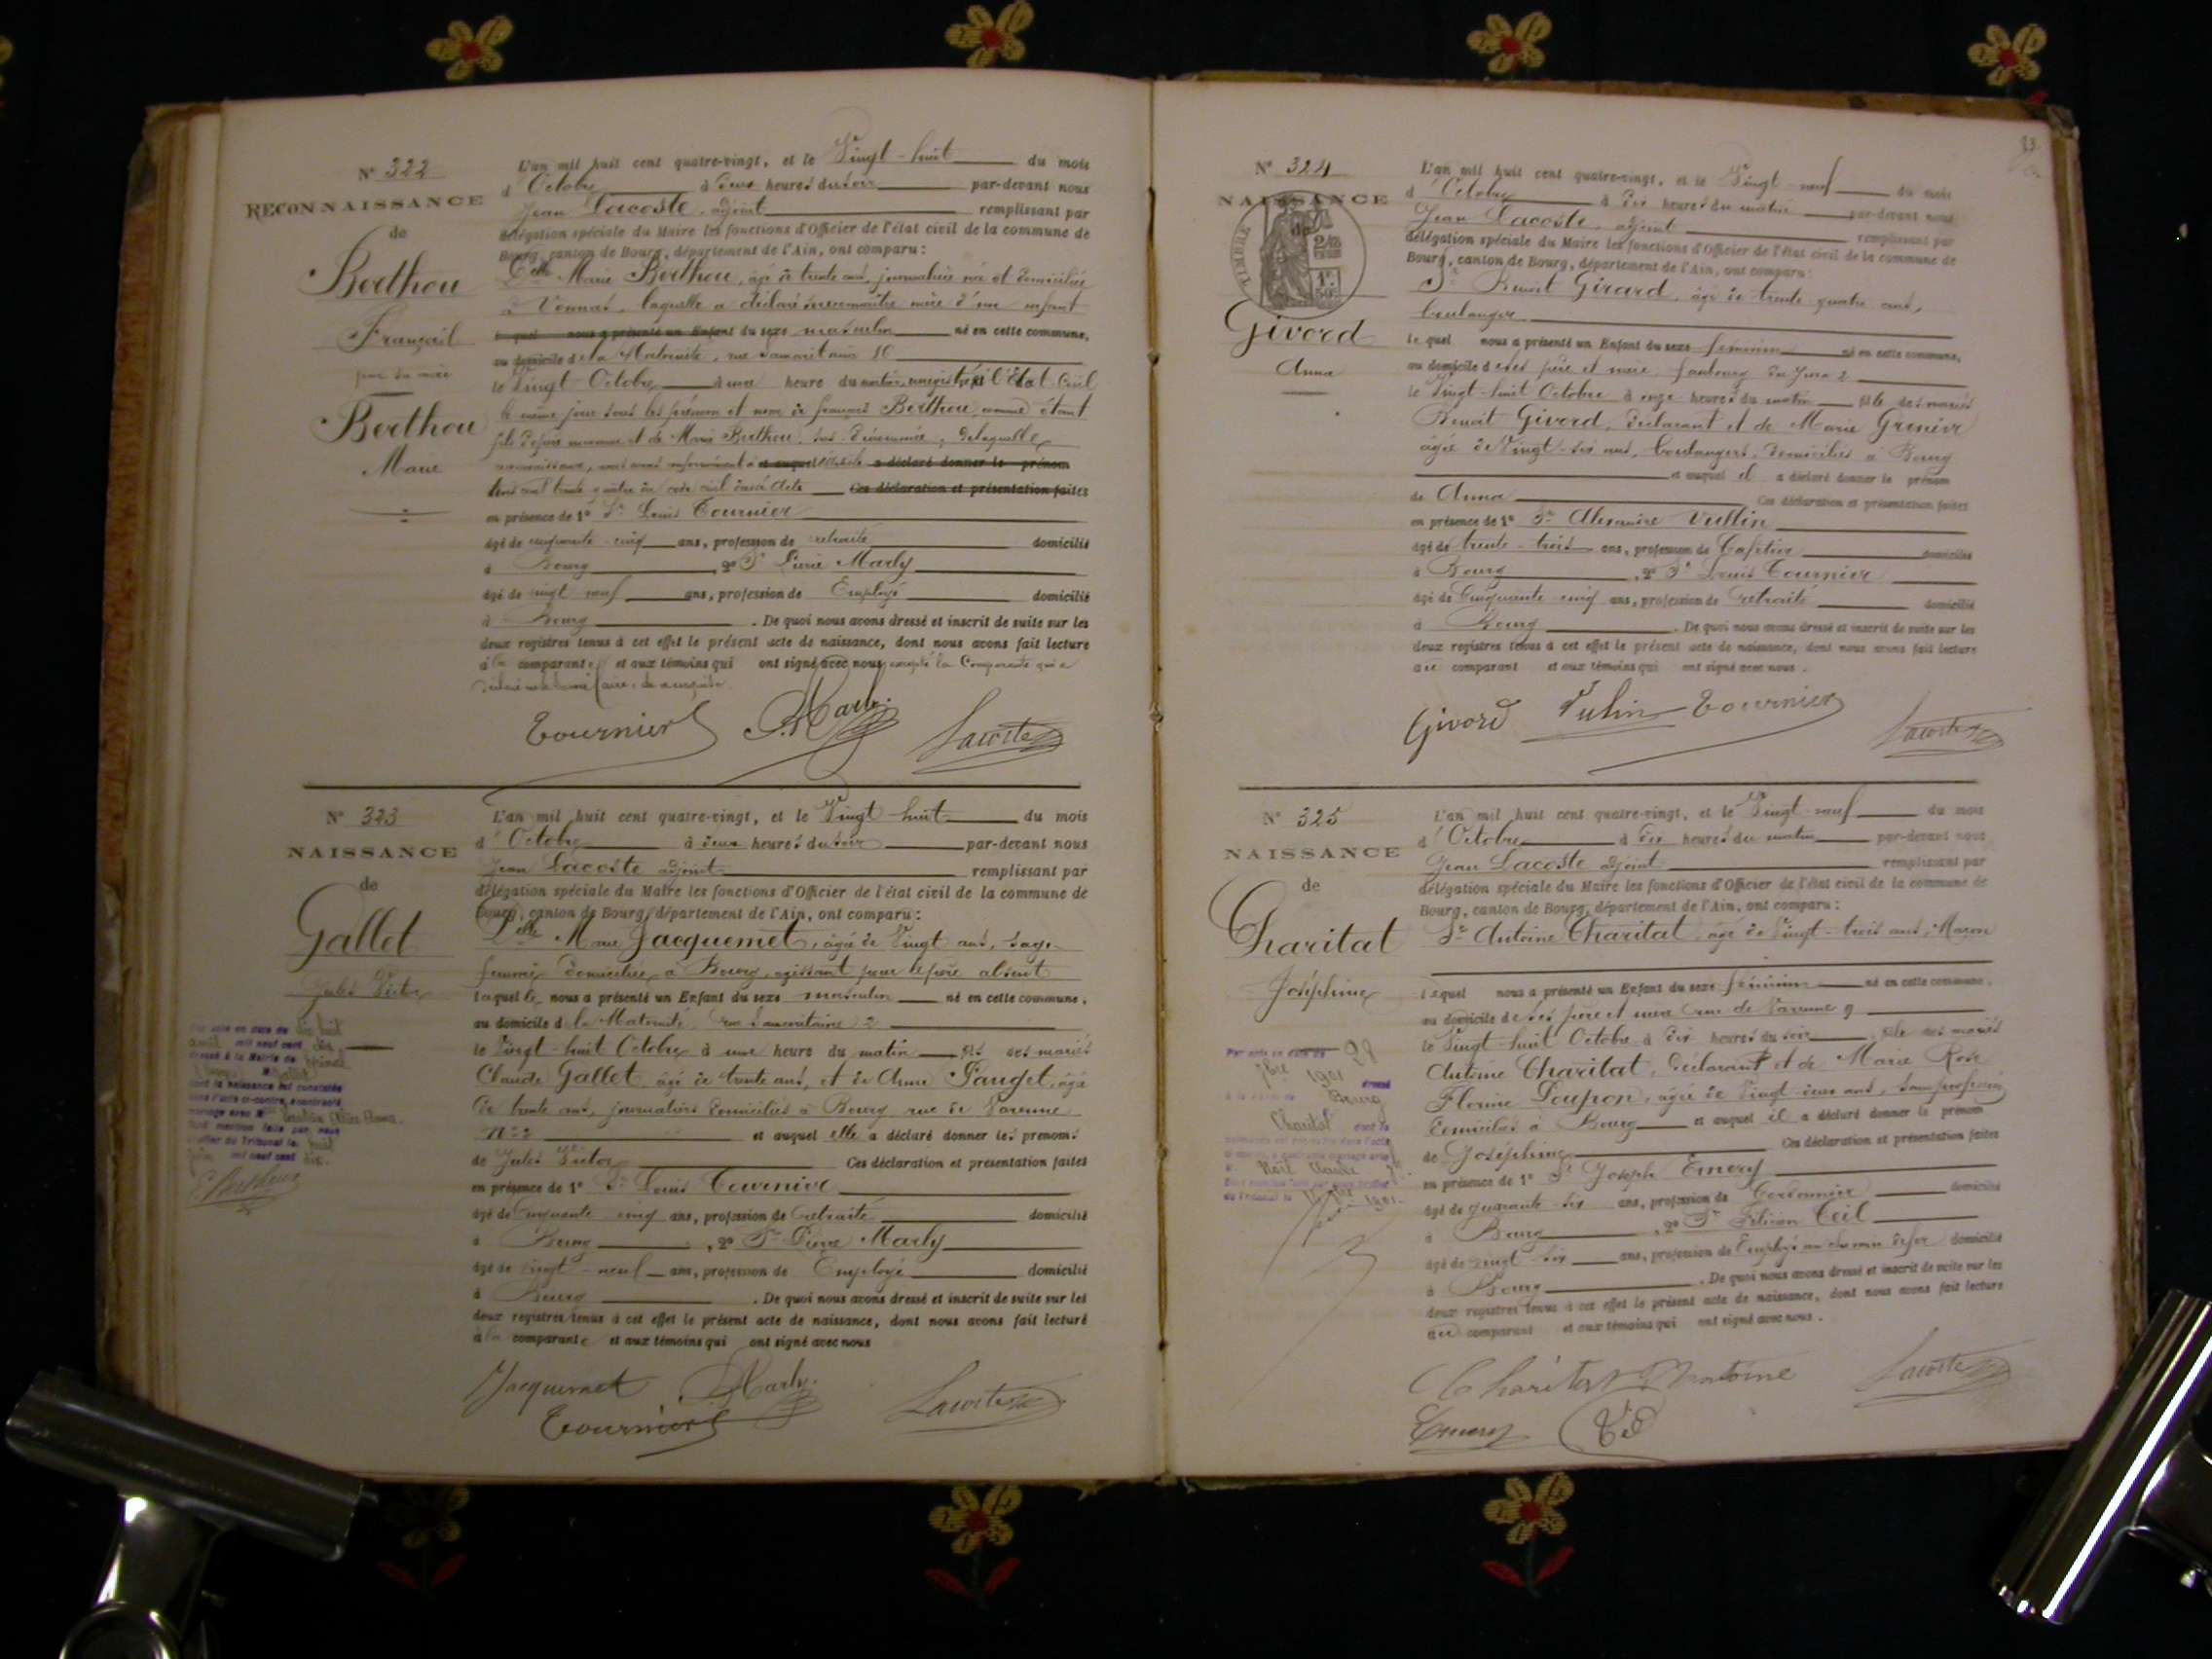 N° 322
RECONNAISSANCE
de
Berthou
François
par sa mère
Berthou
Marie
L'an mil huit cent quatre-vingt, et le Vingt-huit du mois
d'Octobre à deux heures du soir par-devant nous
Jean Lacoste, adjoint remplissant par
délégation spéciale du Maire les fonctions d'Officier de l'état civil de la commune de
Bourg, canton de Bourg, département de l'Ain, ont comparu :
Delle Marie Berthou, âgée de trente ans, journalière née et domiciliée
à Vonnas, laquelle a déclaré reconnaître mère d'un enfant
lequel nous a présenté un Enfant du sexe masculin né en cette commune,
au domicile de la Maternité, rue Samaritaine
le Vingt Octobre à une heure du matin, enregistré à l'État Civil
le même jour sous les prénom et nom de François Berthou, comme étant
fils de père inconnu et de Marie Berthou, sus-dénommée, de laquelle
reconnaissance, nous avons conformément à et auquel a déclaré donner le prénom
trois cent trente quatre du code civil dressé Acte Ces déclaration et présentation faites
en présence de 1° Sr Louis Tournier
âgé de cinquante-cinq ans, profession de retraité domicilié
à Bourg, 2° Sr Pierre Marly
âgé de vingt neuf ans, profession de Employé domicilié
à Bourg. De quoi nous avons dressé et inscrit de suite sur les
deux registres tenus à cet effet le présent acte de naissance, dont nous avons fait lecture
à la comparante et aux témoins qui ont signé avec nous excepté la Comparante qui a
déclaré ne le savoir faire, de ce enquise
Tournier P. Marly Lacoste
N° 323
NAISSANCE
de
Gallet
Jules Victor
Par acte en date du dix huit
avril mil neuf cent dix
dressé à la Mairie de
Gallet
dont la naissance est constatée
dans l'acte ci-contre, a contracté
mariage avec
dont mention faite par nous
Greffier du Tribunal le huit
juin mil neuf cent dix.
L'an mil huit cent quatre-vingt, et le Vingt-huit du mois
d'Octobre à deux heures du soir par-devant nous
Jean Lacoste adjoint remplissant par
délégation spéciale du Maire les fonctions d'Officier de l'état civil de la commune de
Bourg, canton de Bourg, département de l'Ain, ont comparu :
Delle Marie Jacquemet, âgée de Vingt ans, sage-
femme domiciliée à Bourg, agissant pour le père absent
laquelle nous a présenté un Enfant du sexe masculin né en cette commune,
au domicile de la Maternité, rue Samaritaine 2
le Vingt-huit Octobre à une heure du matin fils des mariés
Claude Gallet âgé de trente ans, et de Anne Pauget, âgée
de trente ans, journaliers domiciliés à Bourg rue de Varenne
N° 2 et auquel elle a déclaré donner les prénoms
de Jules Victor Ces déclaration et présentation faites
en présence de 1° Sr Louis Tournier
âgé de Cinquante cinq ans, profession de Retraité domicilié
à Bourg, 2° Sr Pierre Marly
âgé de vingt-neuf ans, profession de Employé domicilié
à Bourg. De quoi nous avons dressé et inscrit de suite sur les
deux registres tenus à cet effet le présent acte de naissance, dont nous avons fait lecture
à la comparante et aux témoins qui ont signé avec nous
Jacquemet P. Marly
Tournier Lacoste
N° 324
NAISSANCE
de
TIMBRE
Givord
Anna
L'an mil huit cent quatre-vingt, et le Vingt-neuf du mois
d'Octobre à dix heures du matin par-devant nous
Jean Lacoste, adjoint remplissant par
délégation spéciale du Maire les fonctions d'Officier de l'état civil de la commune de
Bourg, canton de Bourg, département de l'Ain, ont comparu :
Sr Benoit Girard, âgé de trente quatre ans,
boulanger
lequel nous a présenté un Enfant du sexe féminin né en cette commune,
au domicile de ses père et mère faubourg du Jura 2
le Vingt-huit Octobre à onze heures du matin fille des mariés
Benoit Givord, déclarant et de Marie Grenier
âgée de Vingt-six ans, boulangers, domiciliés à Bourg
et auquel il a déclaré donner le prénom
de Anna Ces déclaration et présentation faites
en présence de 1° Sr Alexandre Vullin
âgé de trente-trois ans, profession de Cafetier domicilié
à Bourg, 2° Sr Louis Tournier
âgé de Cinquante cinq ans, profession de retraité domicilié
à Bourg. De quoi nous avons dressé et inscrit de suite sur les
deux registres tenus à cet effet le présent acte de naissance, dont nous avons fait lecture
au comparant et aux témoins qui ont signé avec nous.
Givord Vulin Tournier Lacoste
N° 325
NAISSANCE
de
Charitat
Joséphine
Par acte en date du 28
1901 dressé
à la Mairie de Bourg
Charitat dont la
L'an mil huit cent quatre-vingt, et le Vingt-neuf du mois
d'Octobre à dix heures du matin par-devant nous
Jean Lacoste adjoint remplissant par
délégation spéciale du Maire les fonctions d'Officier de l'état civil de la commune de
Bourg, canton de Bourg, département de l'Ain, ont comparu :
Sr Antoine Charitat, âgé de Vingt-trois ans, Maçon
lequel nous a présenté un Enfant du sexe féminin né en cette commune,
au domicile de ses père et mère rue de Varenne 9
le Vingt-huit Octobre à dix heures du soir, fille des mariés
Antoine Charitat, déclarant et de Marie Rose
Florine Loupon, âgée de Vingt-deux ans, sans profession
domiciliés à Bourg et auquel il a déclaré donner le prénom
de Joséphine Ces déclaration et présentation faites
en présence de 1° Sr Joseph Emery
âgé de quarante-six ans, profession de Cordonnier domicilié
à Bourg, 2° Sr Félicien Ceil
âgé de vingt six ans, profession de Employé au chemin de fer domicilié
à Bourg. De quoi nous avons dressé et inscrit de suite sur les
deux registres tenus à cet effet le présent acte de naissance, dont nous avons fait lecture
au comparant et aux témoins qui ont signé avec nous.
Charitat Antoine Lacoste
Emery